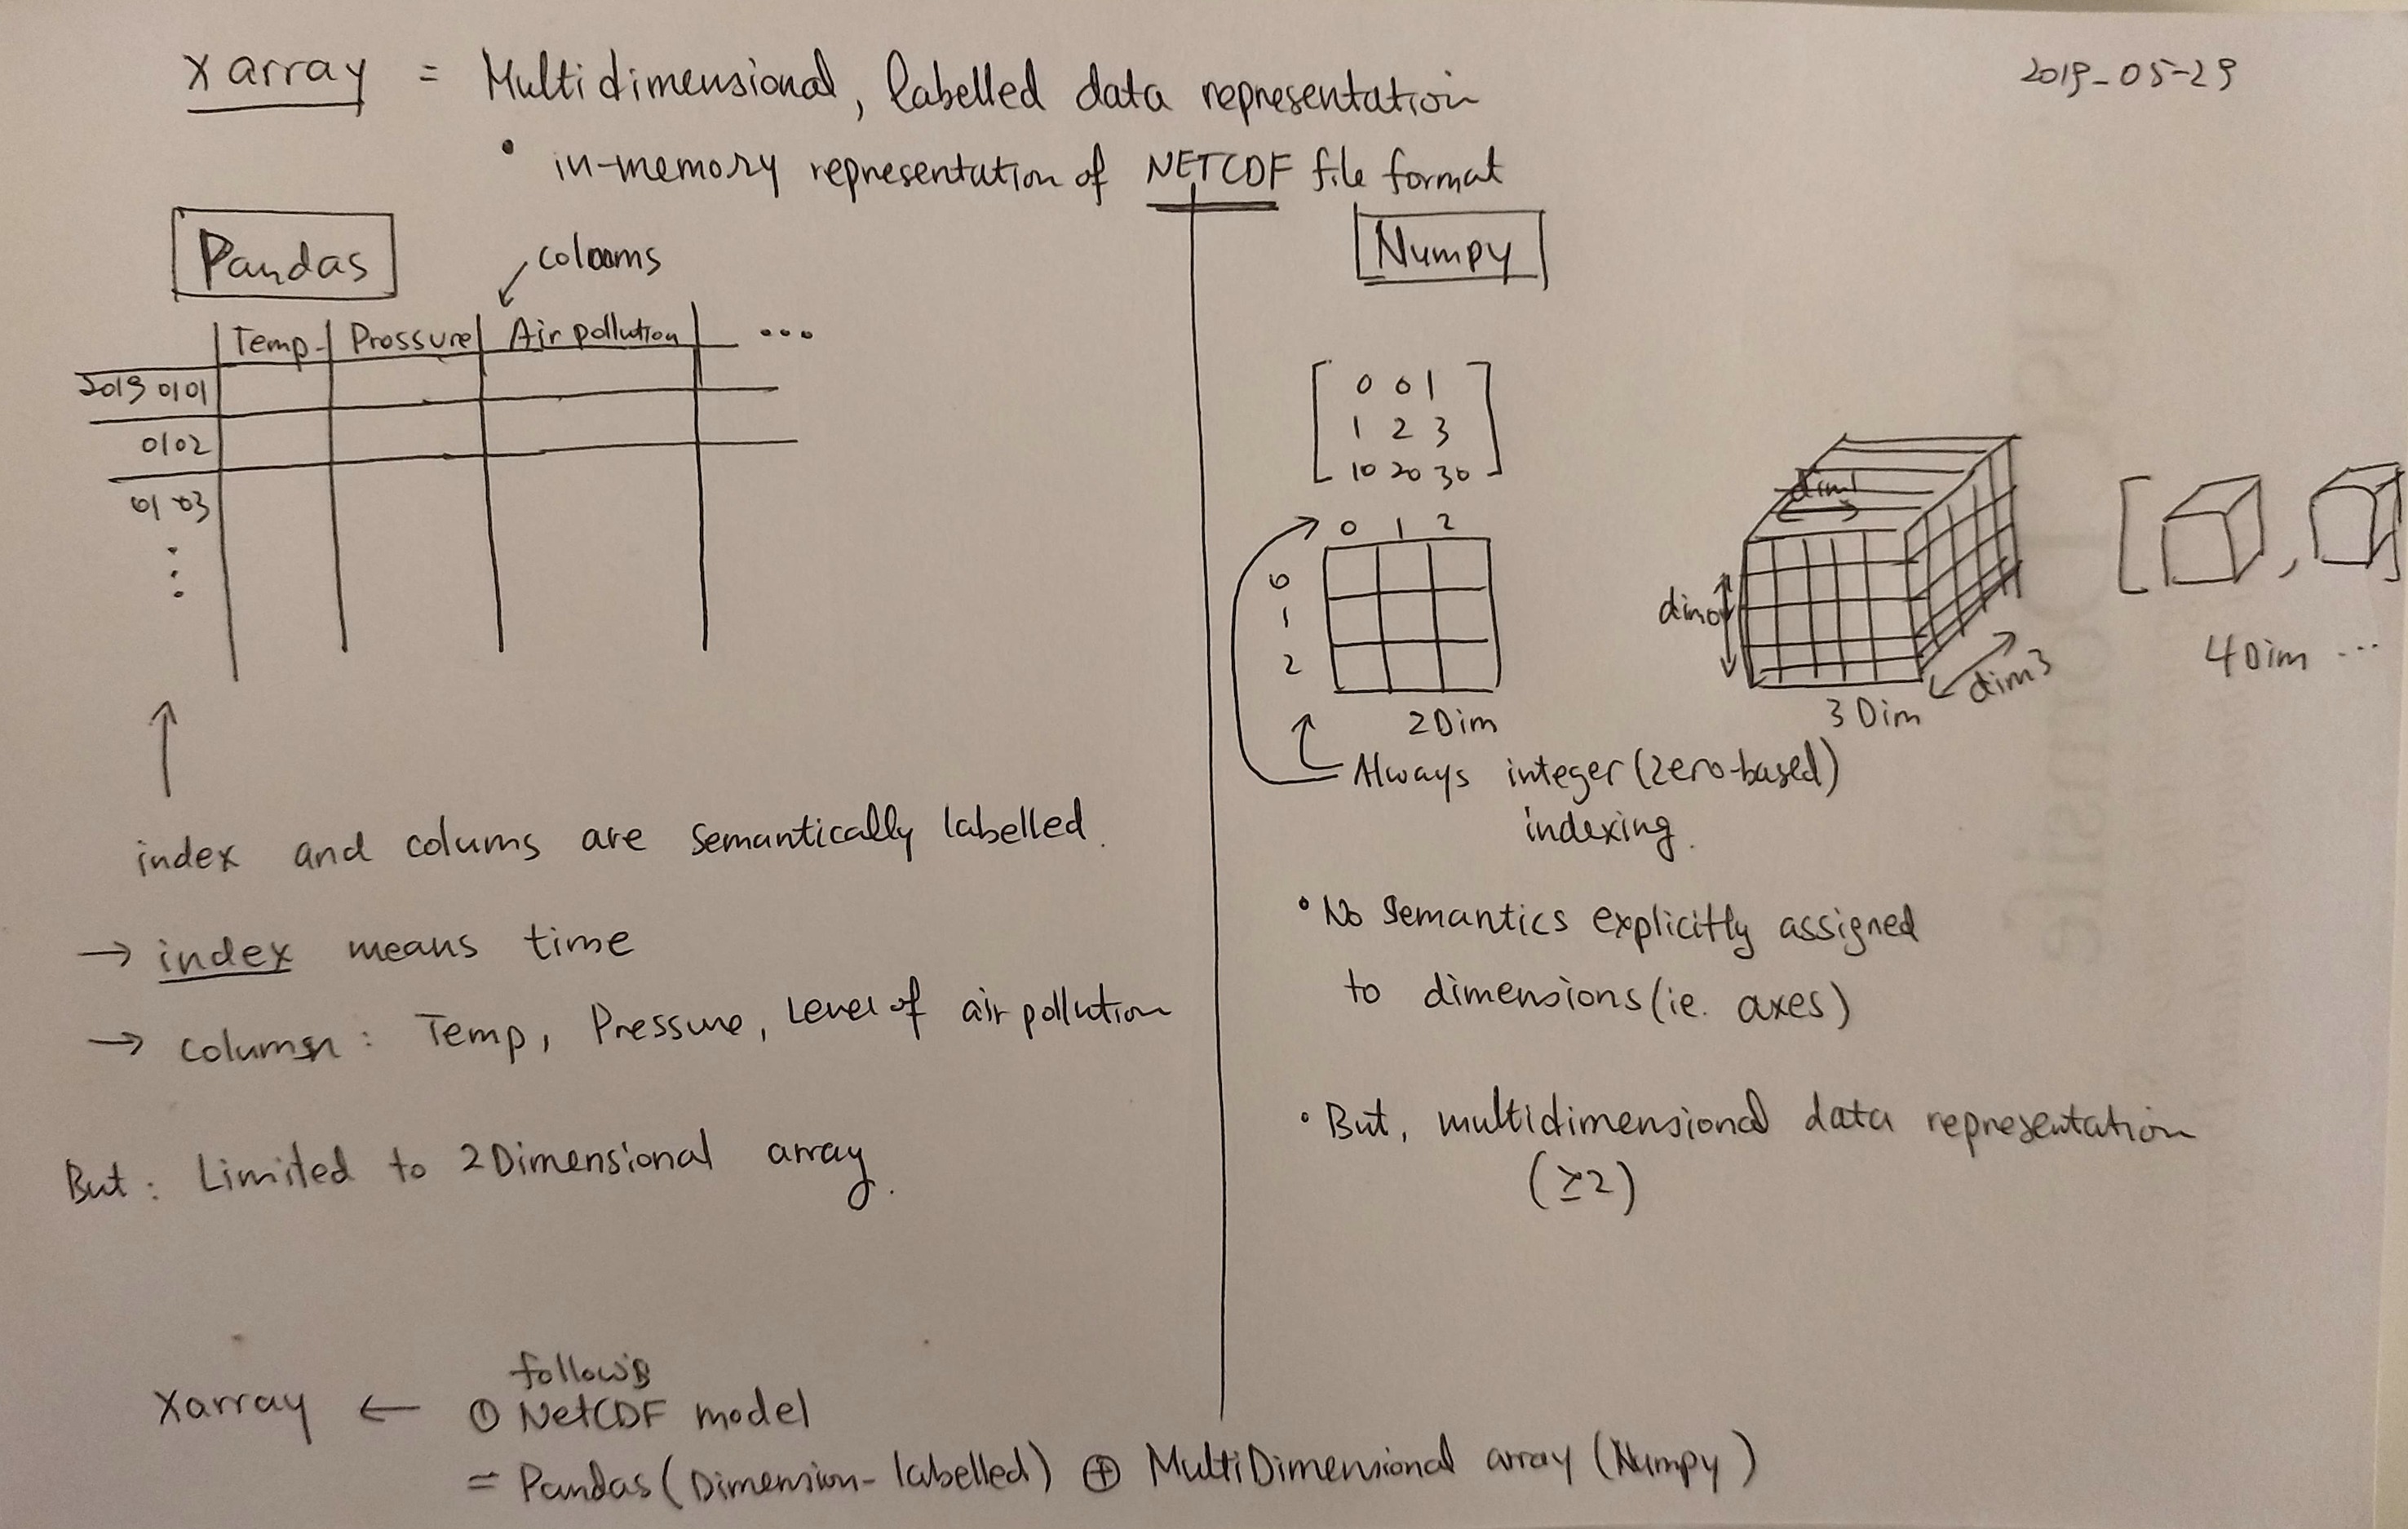 xarray = Multidimensional, labelled data representation
2019-05-29
• in-memory representation of NETCDF file format
Pandas
colooms
Temp. Pressure Air pollution ...
2019 0101
0102
01 03
index and colums are semantically labelled.
→ index means time
→ column: Temp, Pressure, Level of air pollution
But: Limited to 2Dimensional array.
Numpy
0 0 1
1 2 3
10 20 30
0 1 2
0
1
2
2Dim
dim1
dim0
dim3
3 Dim
4 Dim ...
Always integer (zero-based)
indexing.
• No semantics explicitly assigned
to dimensions (ie. axes)
• But, multidimensional data representation
(≥2)
follows
xarray ← ① NetCDF model
= Pandas (Dimension-labelled) ⊕ MultiDimensional array (Numpy)